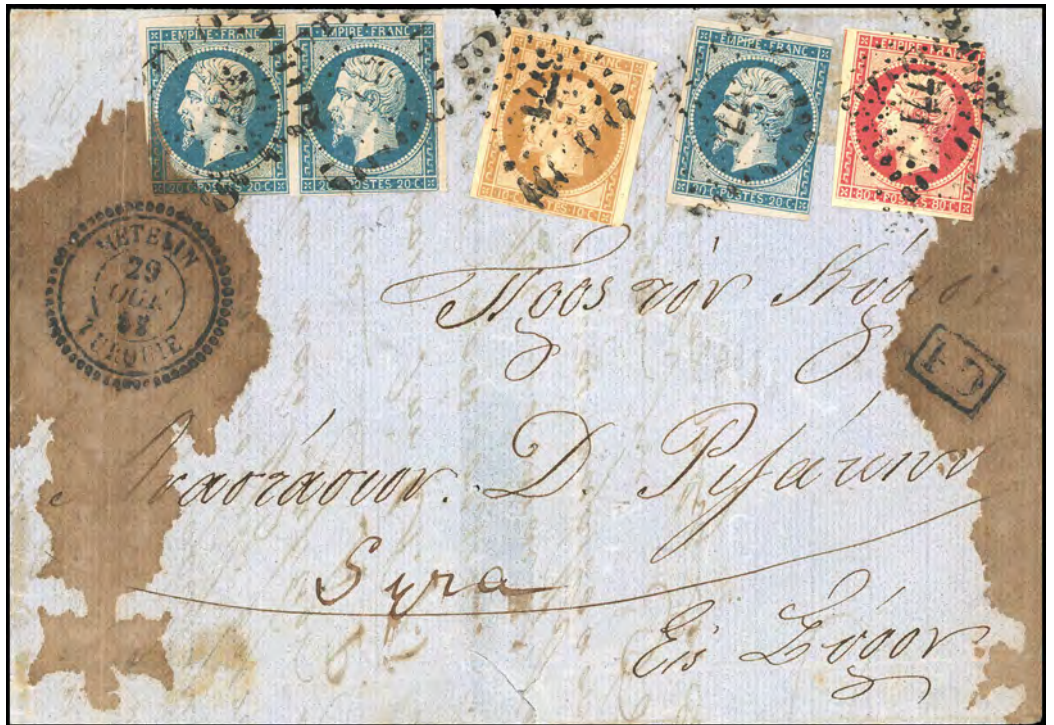 EMPIRE FRANC
20 C POSTES 20 C
EMPIRE FRANC
20 C POSTES 20 C
10 C POSTES 10 C
EMPIRE FRANC
20 C POSTES 20 C
EMPIRE FRANC
80 C POSTES 80 C
METELIN
29
OCT
TURQUIE
Πρὸς τὸν Κύριον
Ἀναστάσιον. D. Ριζάκην
Syra
Εἰς Σύρον